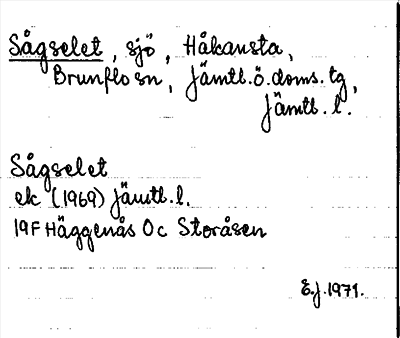 Sågselet, sjö, Håkansta,
Brunflo sn, Jämtl.ö.doms.tg,
Jämtl. l.
Sågselet
ek (1969) Jämtl.l.
19F Häggenås Oc Storåsen
E.J.1971.